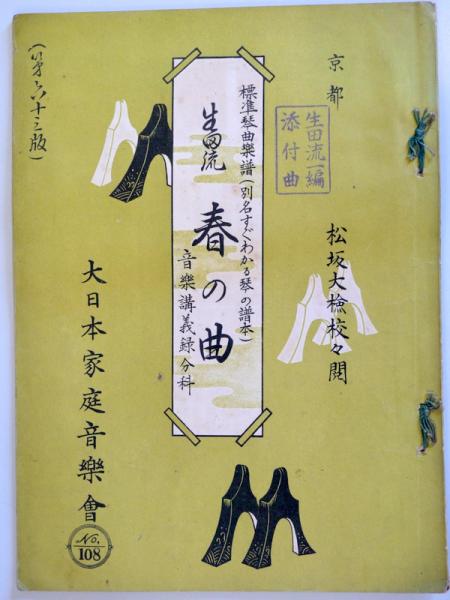 京都
生田流一編
添付曲
松坂大檢校々閲
標準琴曲樂譜(別名すぐわかる琴の譜本)
生田流
春の曲
音樂講義録分科
大日本家庭音樂會
No.
108
(第六十三版)